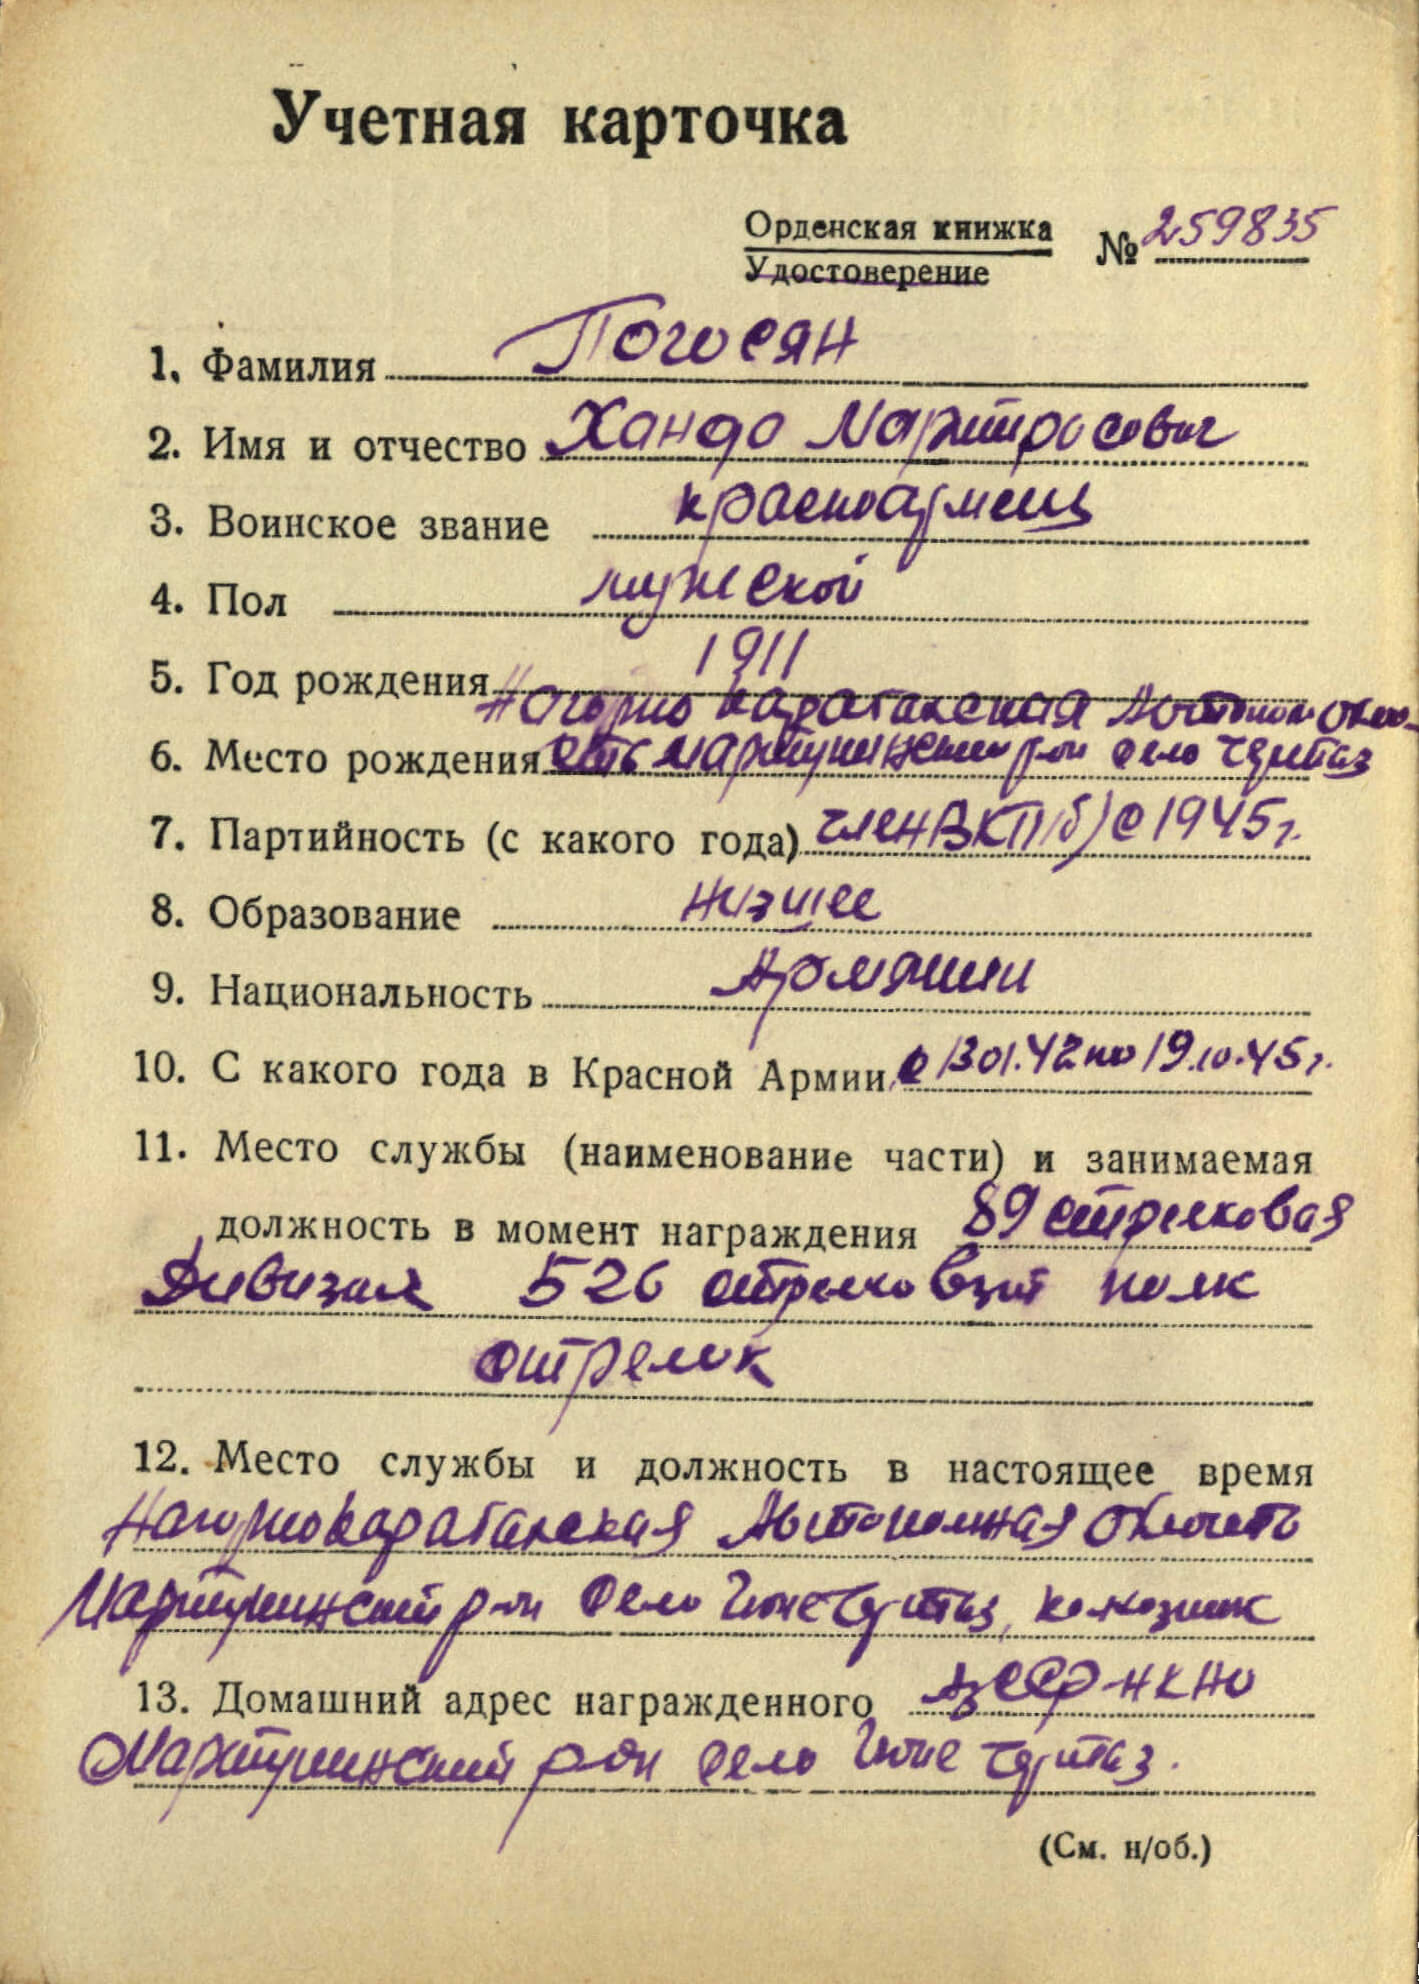 Учетная карточка
Орденская книжка
Удостоверение
№ 259835
1. Фамилия Погосян
2. Имя и отчество Хандо Мартиросович
3. Воинское звание красноармеец
4. Пол мужской
5. Год рождения 1911
Нагорно Карабахская Автоном обла-
6. Место рождения сть Мартунинский р-он село
7. Партийность (с какого года) член ВКП(б) с 1945 г.
8. Образование низшее
9. Национальность Армянин
10. С какого года в Красной Армии с 13 01.42 по 19.10.45 г.
11. Место службы (наименование части) и занимаемая
должность в момент награждения 89 стрелковая
Дивизая 526 стрелковый полк
стрелок
12. Место службы и должность в настоящее время
Нагорно Карабахская Автономная Область
Мартунинский р-он село колхозник
13. Домашний адрес награжденного АзССР НКАО
Мартунинский р-он село
(См. н/об.)